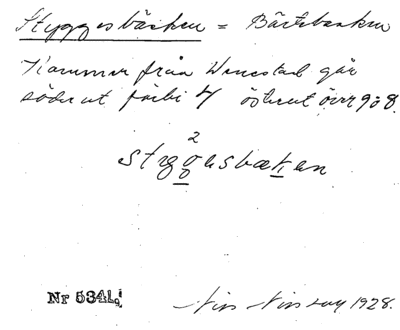 Styggesbäcken = Bäcksbacken
Kommer från Wennestad går
söderut förbi 4 österut över 9o8.
2
styggesbækan
Nr 534L
Nils Nilsson 1928.